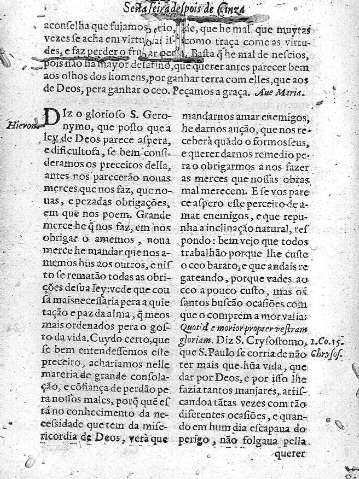 Sesta feira despois de cinza
aconselha que fujamos, rio, de, que he mal que muytas
vezes se acha em virtu como traça come as virtu-
des, e faz perder o Basta q̃ he mal de nescios,
pois não ha mayor desatino, que querer antes parecer bem
aos olhos dos homens, por ganhar terra com elles, que aos
de Deos, pera ganhar o ceo. Peçamos a graça. Aue Maria.
Hieron.
DIz o glorioso S. Gero-
nymo, que posto que a
ley de Deos parece aspera,
e dificultosa, se bem consi-
deramos os preceitos della,
antes nos parecerão nouas
merces que nos faz, que no-
uas, e pezadas obrigações,
em que nos poem. Grande
merce he q̃ nos faz, em nos
obrigar o amemos, noua
merce he mandar que nos a-
memos hũs aos outros, e nis-
to se rematão todas as obri-
gações de sua ley: vede que cou
sa mais necessaria pera a quie
tação e paz da alma, q̃ meos
mais ordenados pera o gos-
to da vida. Cuydo certo, que
se bem entendessemos este
preceito, achariamos nelle
materia de grande consola-
ção, e cõfiança de perdão pe
ra nossos males, porq̃ que es
tá no conhecimento da ne-
cessidade que tem da mise-
ricordia de Deos, verà que
mandarnos amar enemigos,
he darnos aução, que nos re-
ceberà quãdo o formos seus,
e querer darnos remedio pe-
ra o obrigarmos a nos fazer
as merces que nossas obras
mal merecem. E se vos pare
ce aspero este preceito de a-
mar enemigos, e que repu-
nha a inclinação natural, res
pondo: bem vejo que todos
trabalhão porque lhe custe
o ceo barato, e que andais re
gateando, porque vades ao
ceo a pouco custo, mas os
santos buscão ocasiões com
que o comprem a mor valia:
Quotidie morior propter vestram
gloriam. Diz S. Crysostomo,
que S. Paulo se corria de não
ter mais que hũa vida, que
dar por Deos, e por isso lhe
fazia tantos manjares, arris-
candoa tãtas vezes com tão
diferentes ocasiões, e quan-
do em hum dia escapaua do
perigo, não folgaua pella
1. Co. 15.
Chrysos.
querer